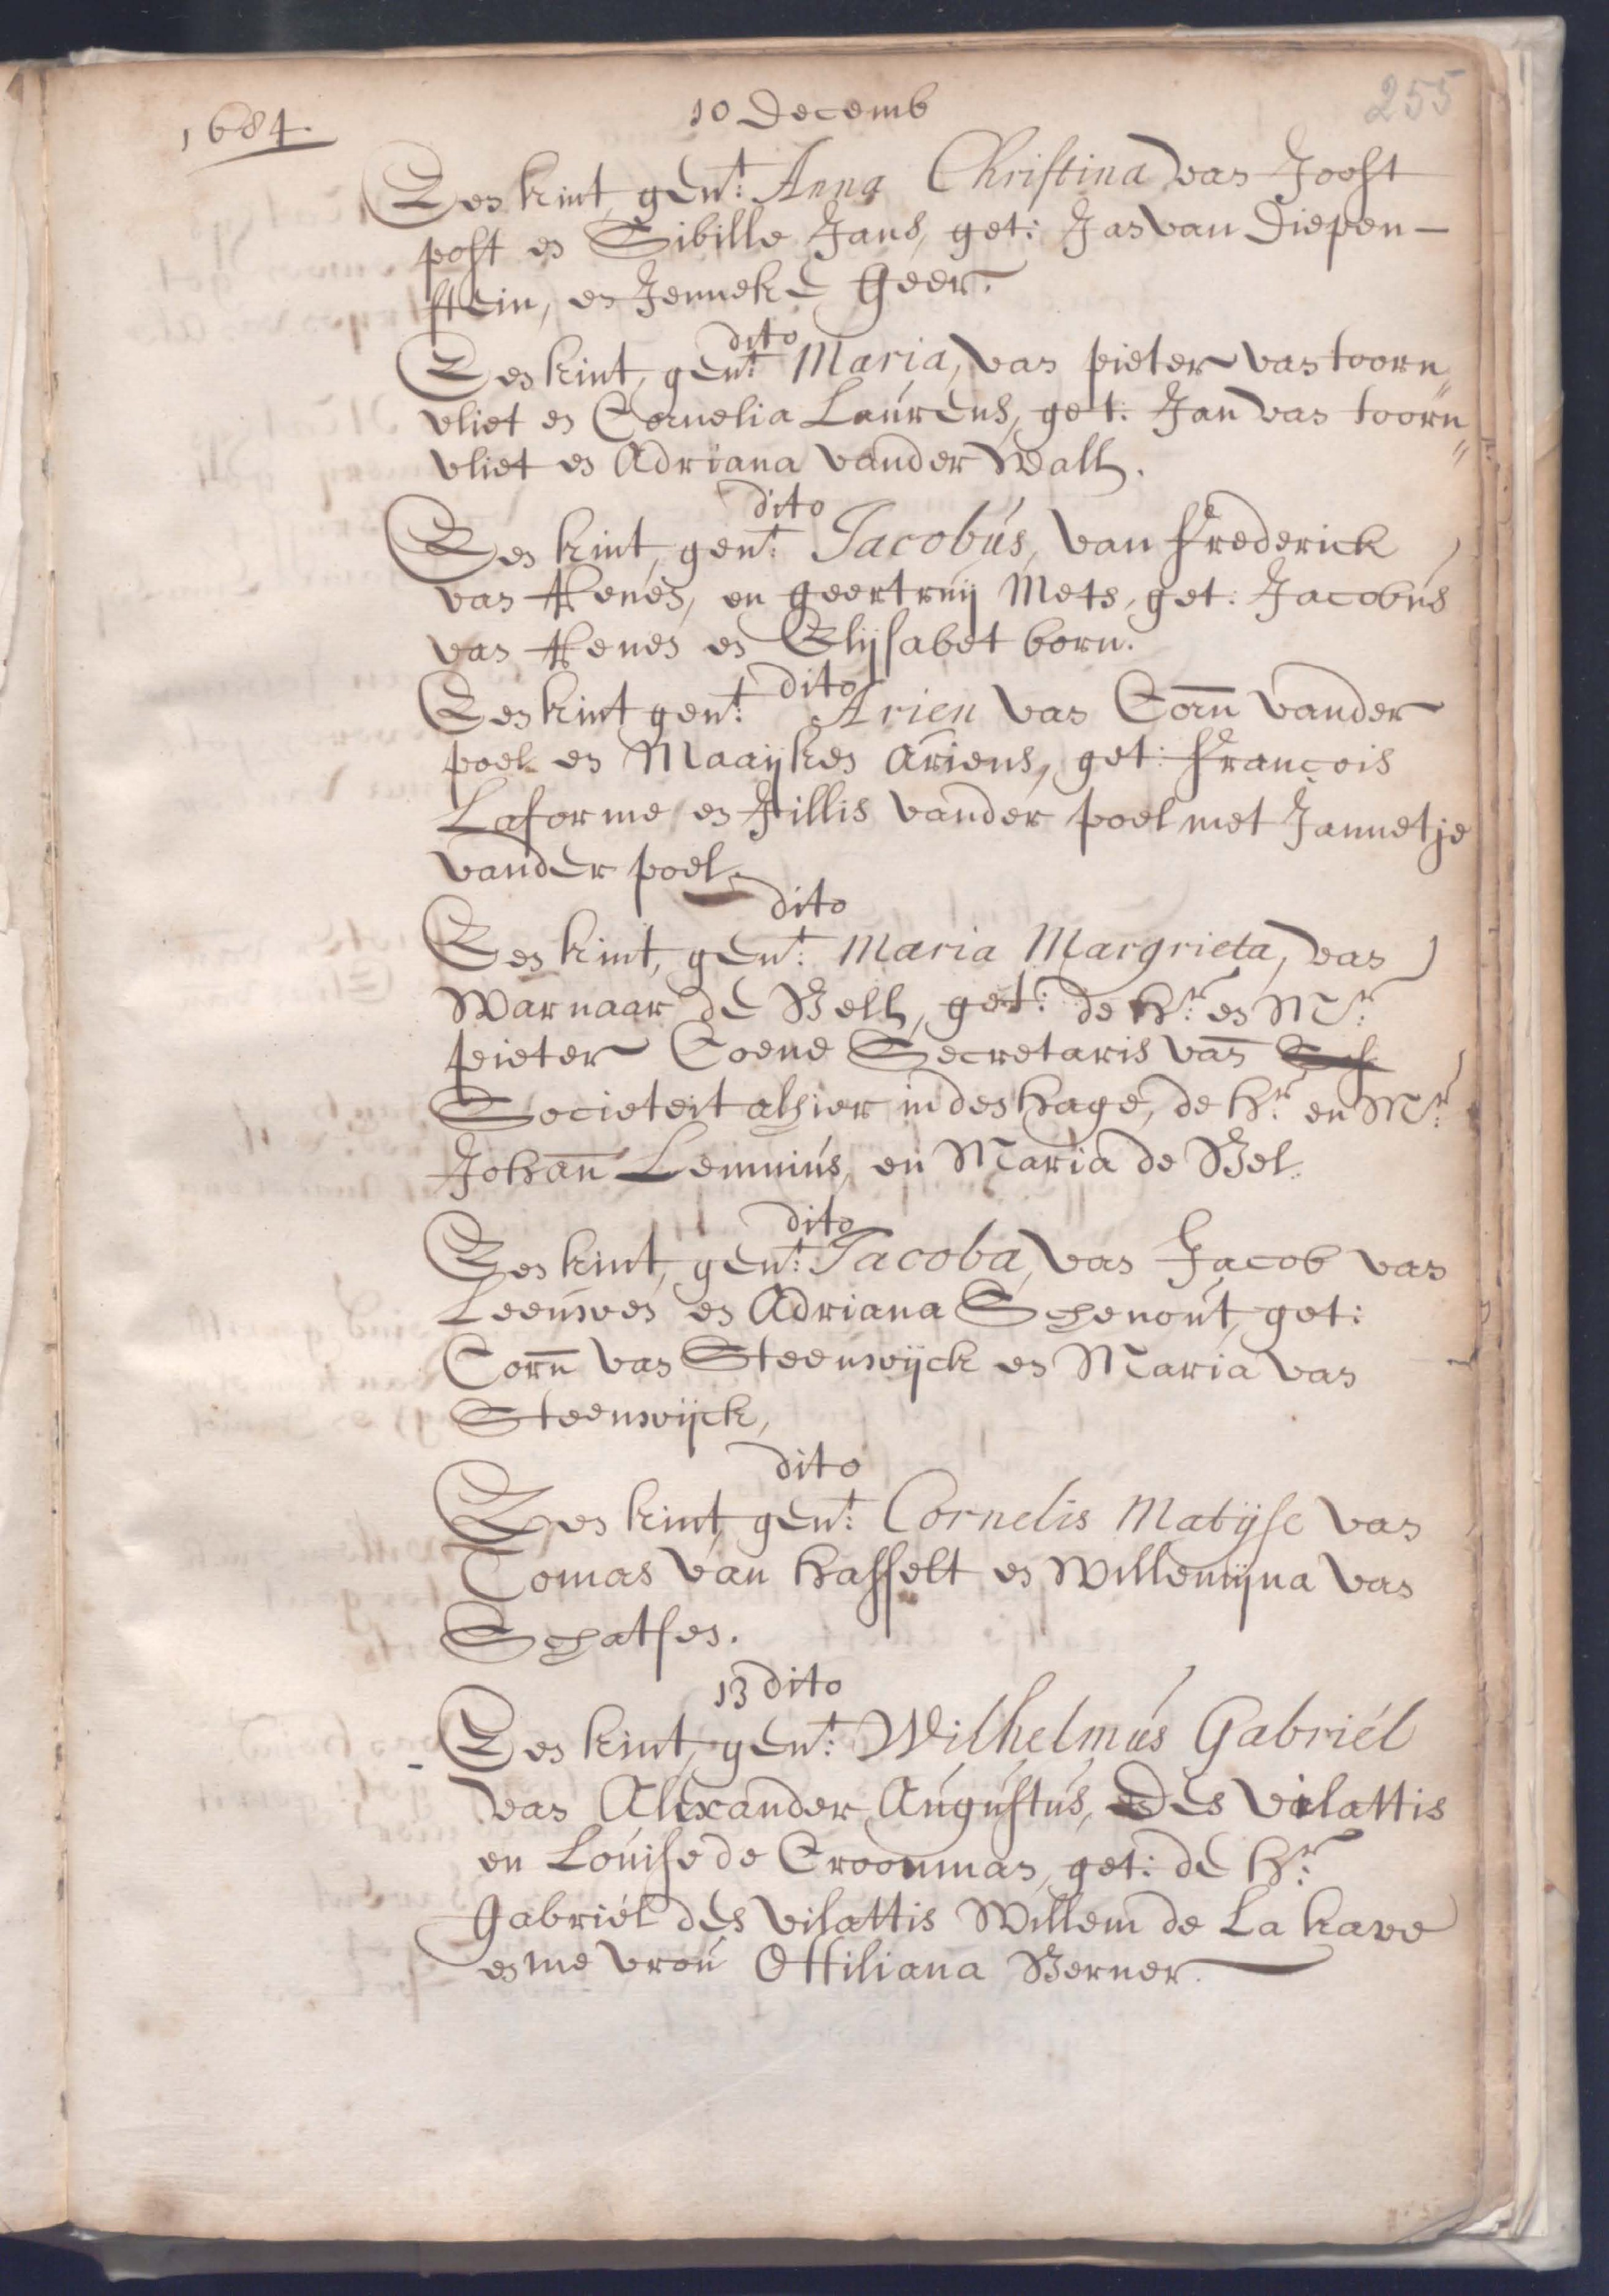 255
1684.
10 Decemb
Een kint, gent: Anna Christina van Joost
post en Sibille Jans, get: Jan van Diepen-
stein, en Jenneke Geer.
dito
Een kint, gent: Maria, van pieter van toorn„
vliet en Cornelia Laurens, get: Jan van toorn„
vliet en Adriana vander Wall.
dito
Een kint, gent: Jacobus, van Frederick
van Renes, en geertruij Mets, get: Jacobus
van Renes en Elijsabet born.
dito
Een kint gent: Arien van Corn vander
poel en Maaijken Ariens, get: François
Laforme en Jillis vander poel met Jannetje
vander poel.
dito
Een kint, gent: Maria Margrieta, van
Warnaar de Bell, get: de Hr: en Mr:
pieter Coene Secretaris van
Societeit alhier in den Hage, de Hr: en Mr:
Johan Lemnius, en Maria de Bel.
dito
Een kint, gent: Jacoba, van Jacob van
Leeuwen en Adriana Schenout, get:
Corn van Steenwijck en Maria van
Steenwijck,
dito
Een kint gent: Cornelis Matijse van
Tomas van Hasselt en Willemijna van
Schatsen.
13 dito
Een kint, gent: Wilhelmus Gabriël
van Alexander Augustus, des Vilattis
en Louise de Croonman, get: de Hr:
Gabriël des Vilattis Willem de La kave
en me vrou Ottiliana Berner.